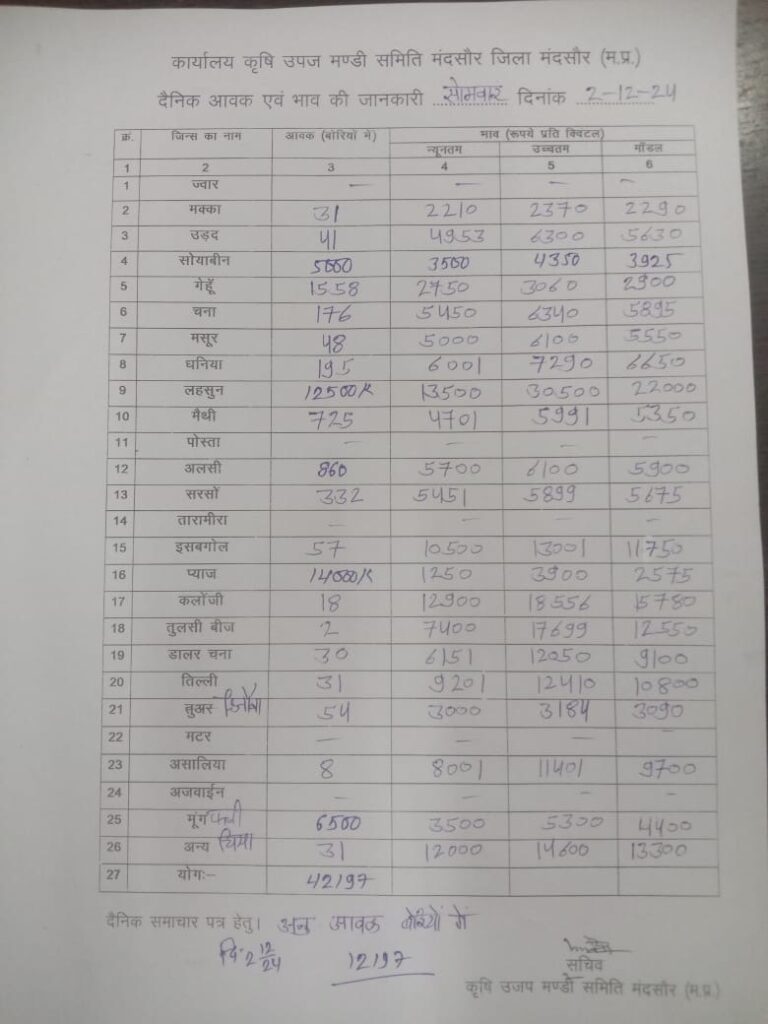 कार्यालय कृषि उपज मण्डी समिति मंदसौर जिला मंदसौर (म.प्र.)
दैनिक आवक एवं भाव की जानकारी सोमवार दिनांक 2-12-24
क्रं. जिन्स का नाम आवक (बोरियों में) भाव (रूपये प्रति क्विंटल)
न्यूनतम उच्चतम मॉडल
1 2 3 4 5 6
1 ज्वार — — — —
2 मक्का 31 2210 2370 2290
3 उड़द 41 4953 6300 5630
4 सोयाबीन 5000 3500 4350 3925
5 गेहूँ 1558 2750 3060 2900
6 चना 176 5450 6340 5895
7 मसूर 48 5000 6100 5550
8 धनिया 195 6001 7290 6650
9 लहसुन 12500/K 13500 30500 22000
10 मैथी 725 4701 5991 5350
11 पोस्ता — — — —
12 अलसी 860 5700 6100 5900
13 सरसों 332 5451 5899 5675
14 तारामीरा — — — —
15 इसबगोल 57 10500 13001 11750
16 प्याज 14000/K 1250 3900 2575
17 कलोंजी 18 12900 18556 15780
18 तुलसी बीज 2 7400 17699 12550
19 डालर चना 30 6151 12050 9100
20 तिल्ली 31 9201 12410 10800
21 तुअर 54 3000 3184 3090
22 मटर — — — —
23 असालिया 8 8001 11401 9700
24 अजवाईन — — — —
25 मूंगफली 6500 3500 5300 4400
26 अन्य चिया 31 12000 14600 13300
27 योगः— 42197
दैनिक समाचार पत्र हेतु। आवक बोरियों में
दि. 2 12/24 12197
सचिव
कृषि उजप मण्डी समिति मंदसौर (म.प्र.)